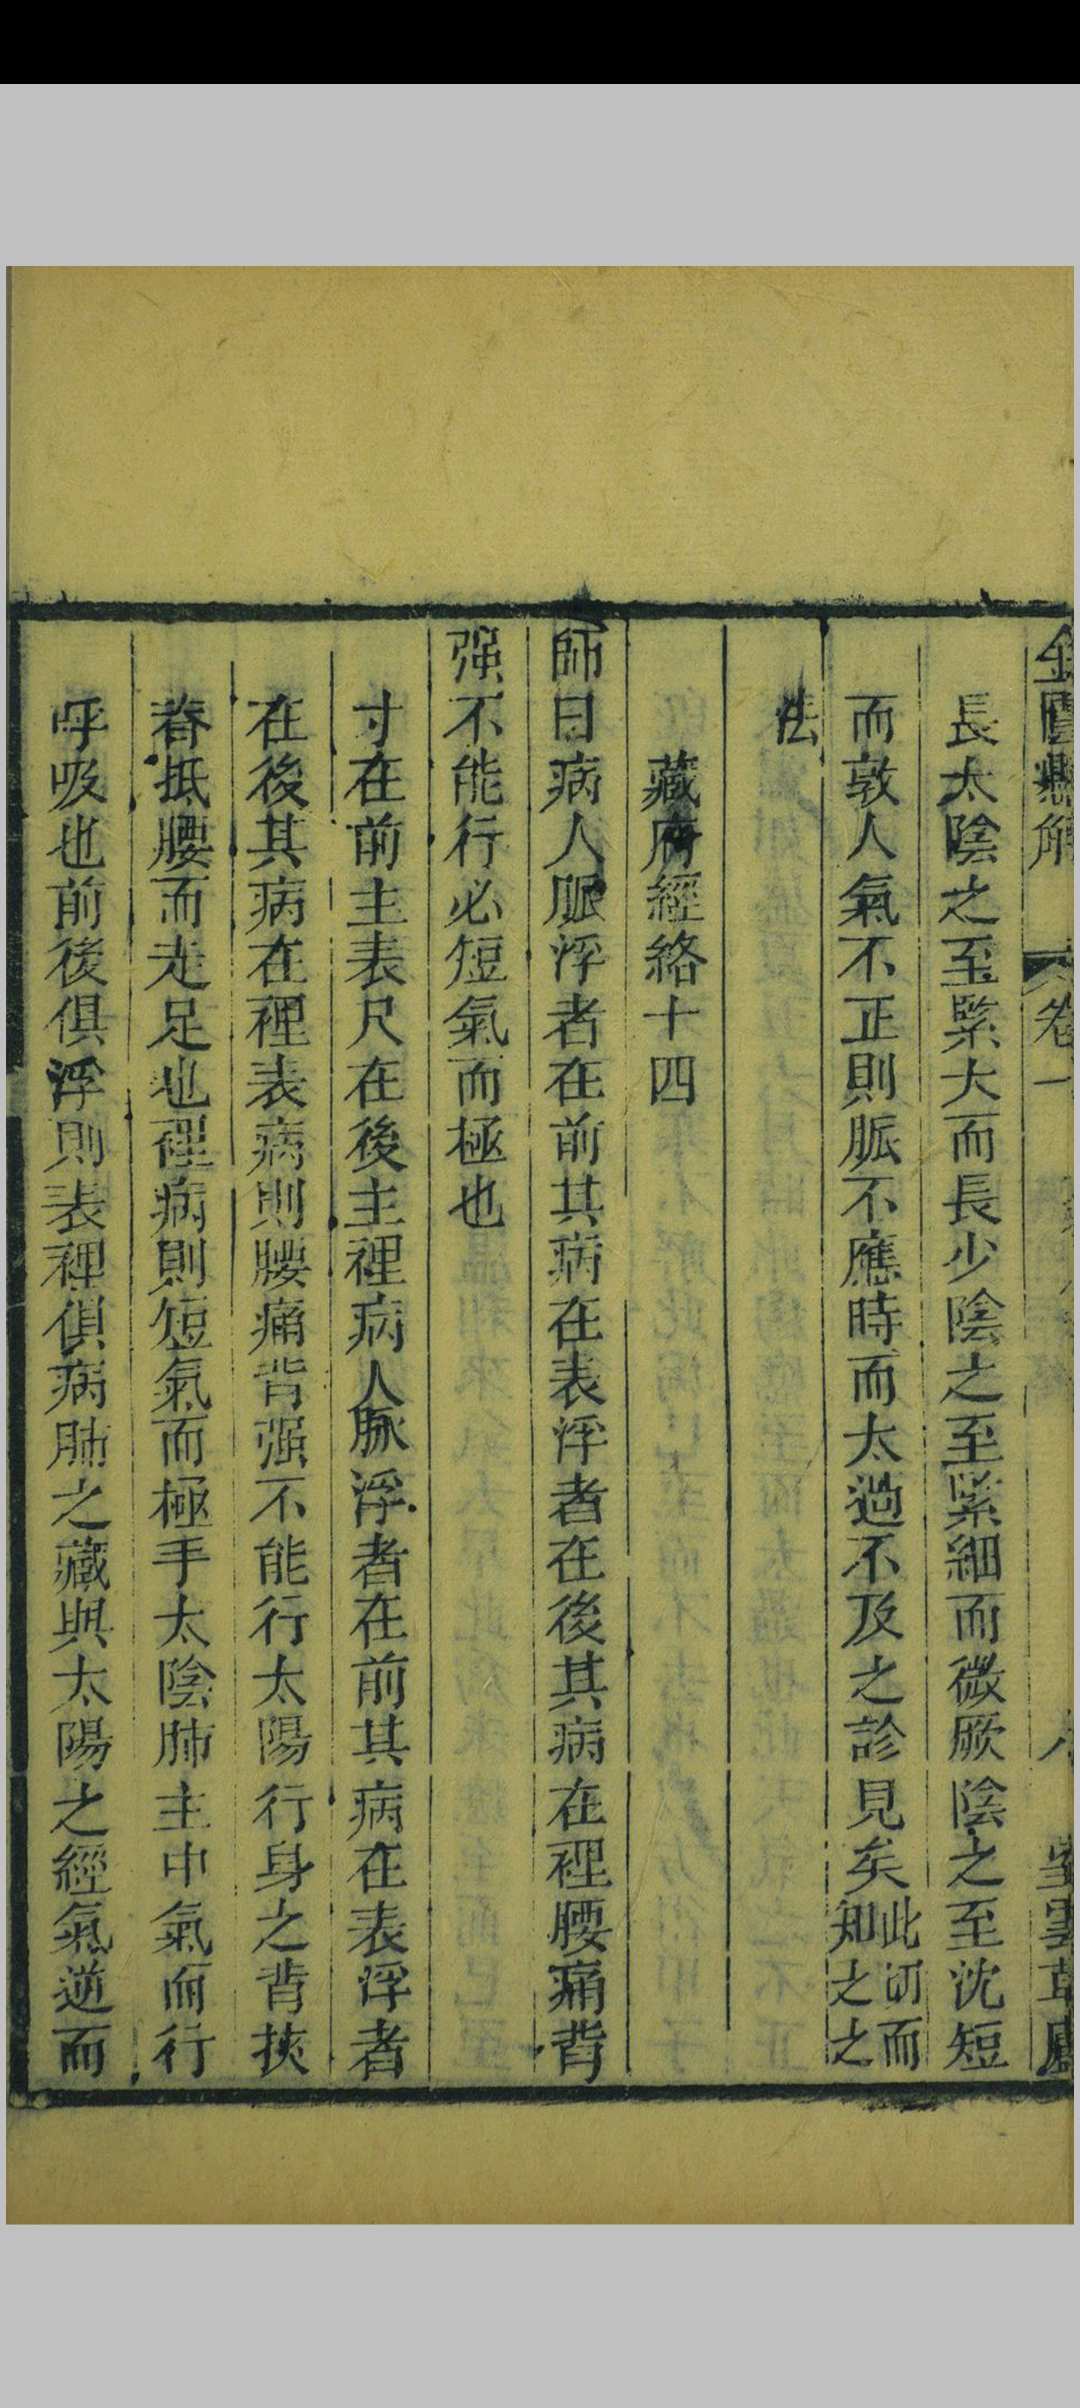 金匱懸解 卷一
長太陰之至緊大而長少陰之至緊細而微厥陰之至沈短
而敦人氣不正則脈不應時而太過不及之診見矣此切而知之之
法
藏府經絡十四
師曰病人脈浮者在前其病在表浮者在後其病在裡腰痛背
强不能行必短氣而極也
寸在前主表尺在後主裡病人脉浮者在前其病在表浮者
在後其病在裡表病則腰痛背强不能行太陽行身之背挾
脊抵腰而走足也裡病則短氣而極手太陰肺主中氣而行
呼吸也前後俱浮則表裡俱病肺之藏與太陽之經氣逆而